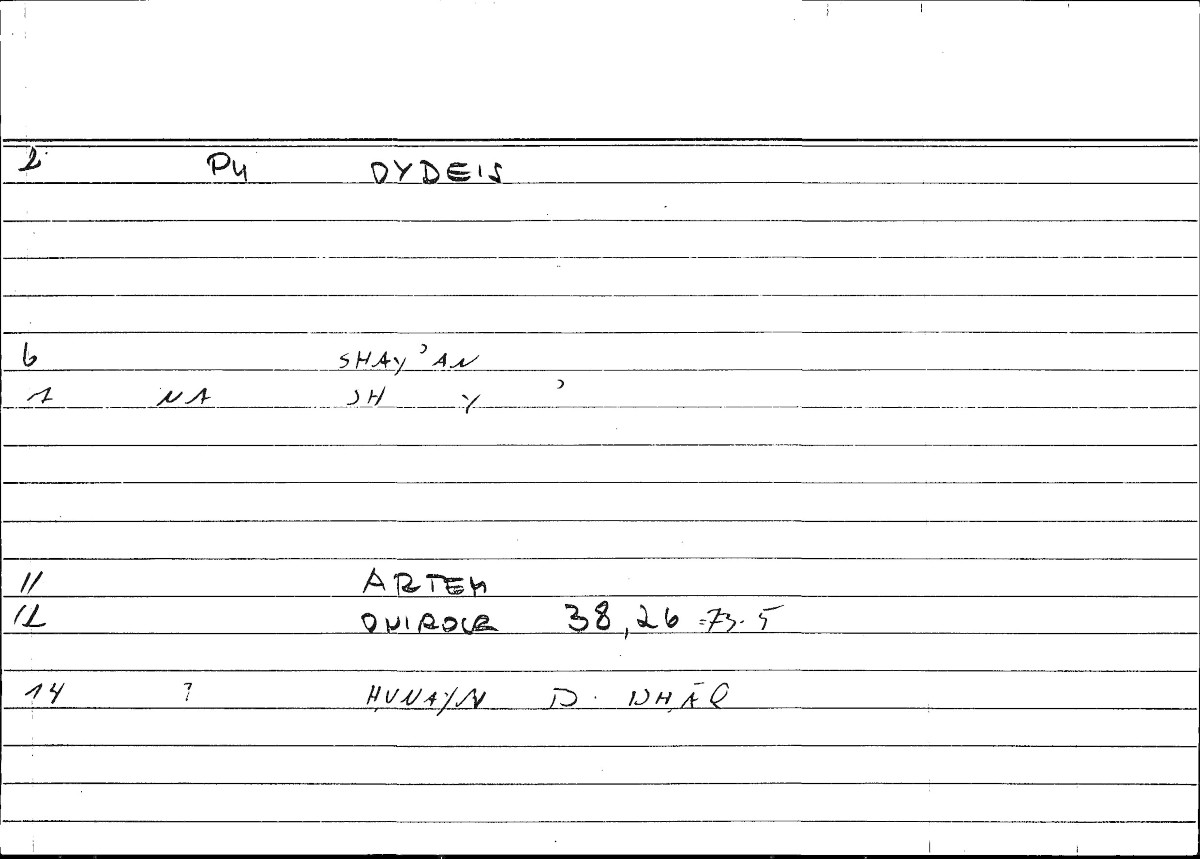 2 Pu OYDEIS
6 SHAY'AN
1 NA SH Y '
11 ARTEM
12 ONIROCR 38,26 =73.5
14 ? ḤUNAYN B. ISḤĀQ